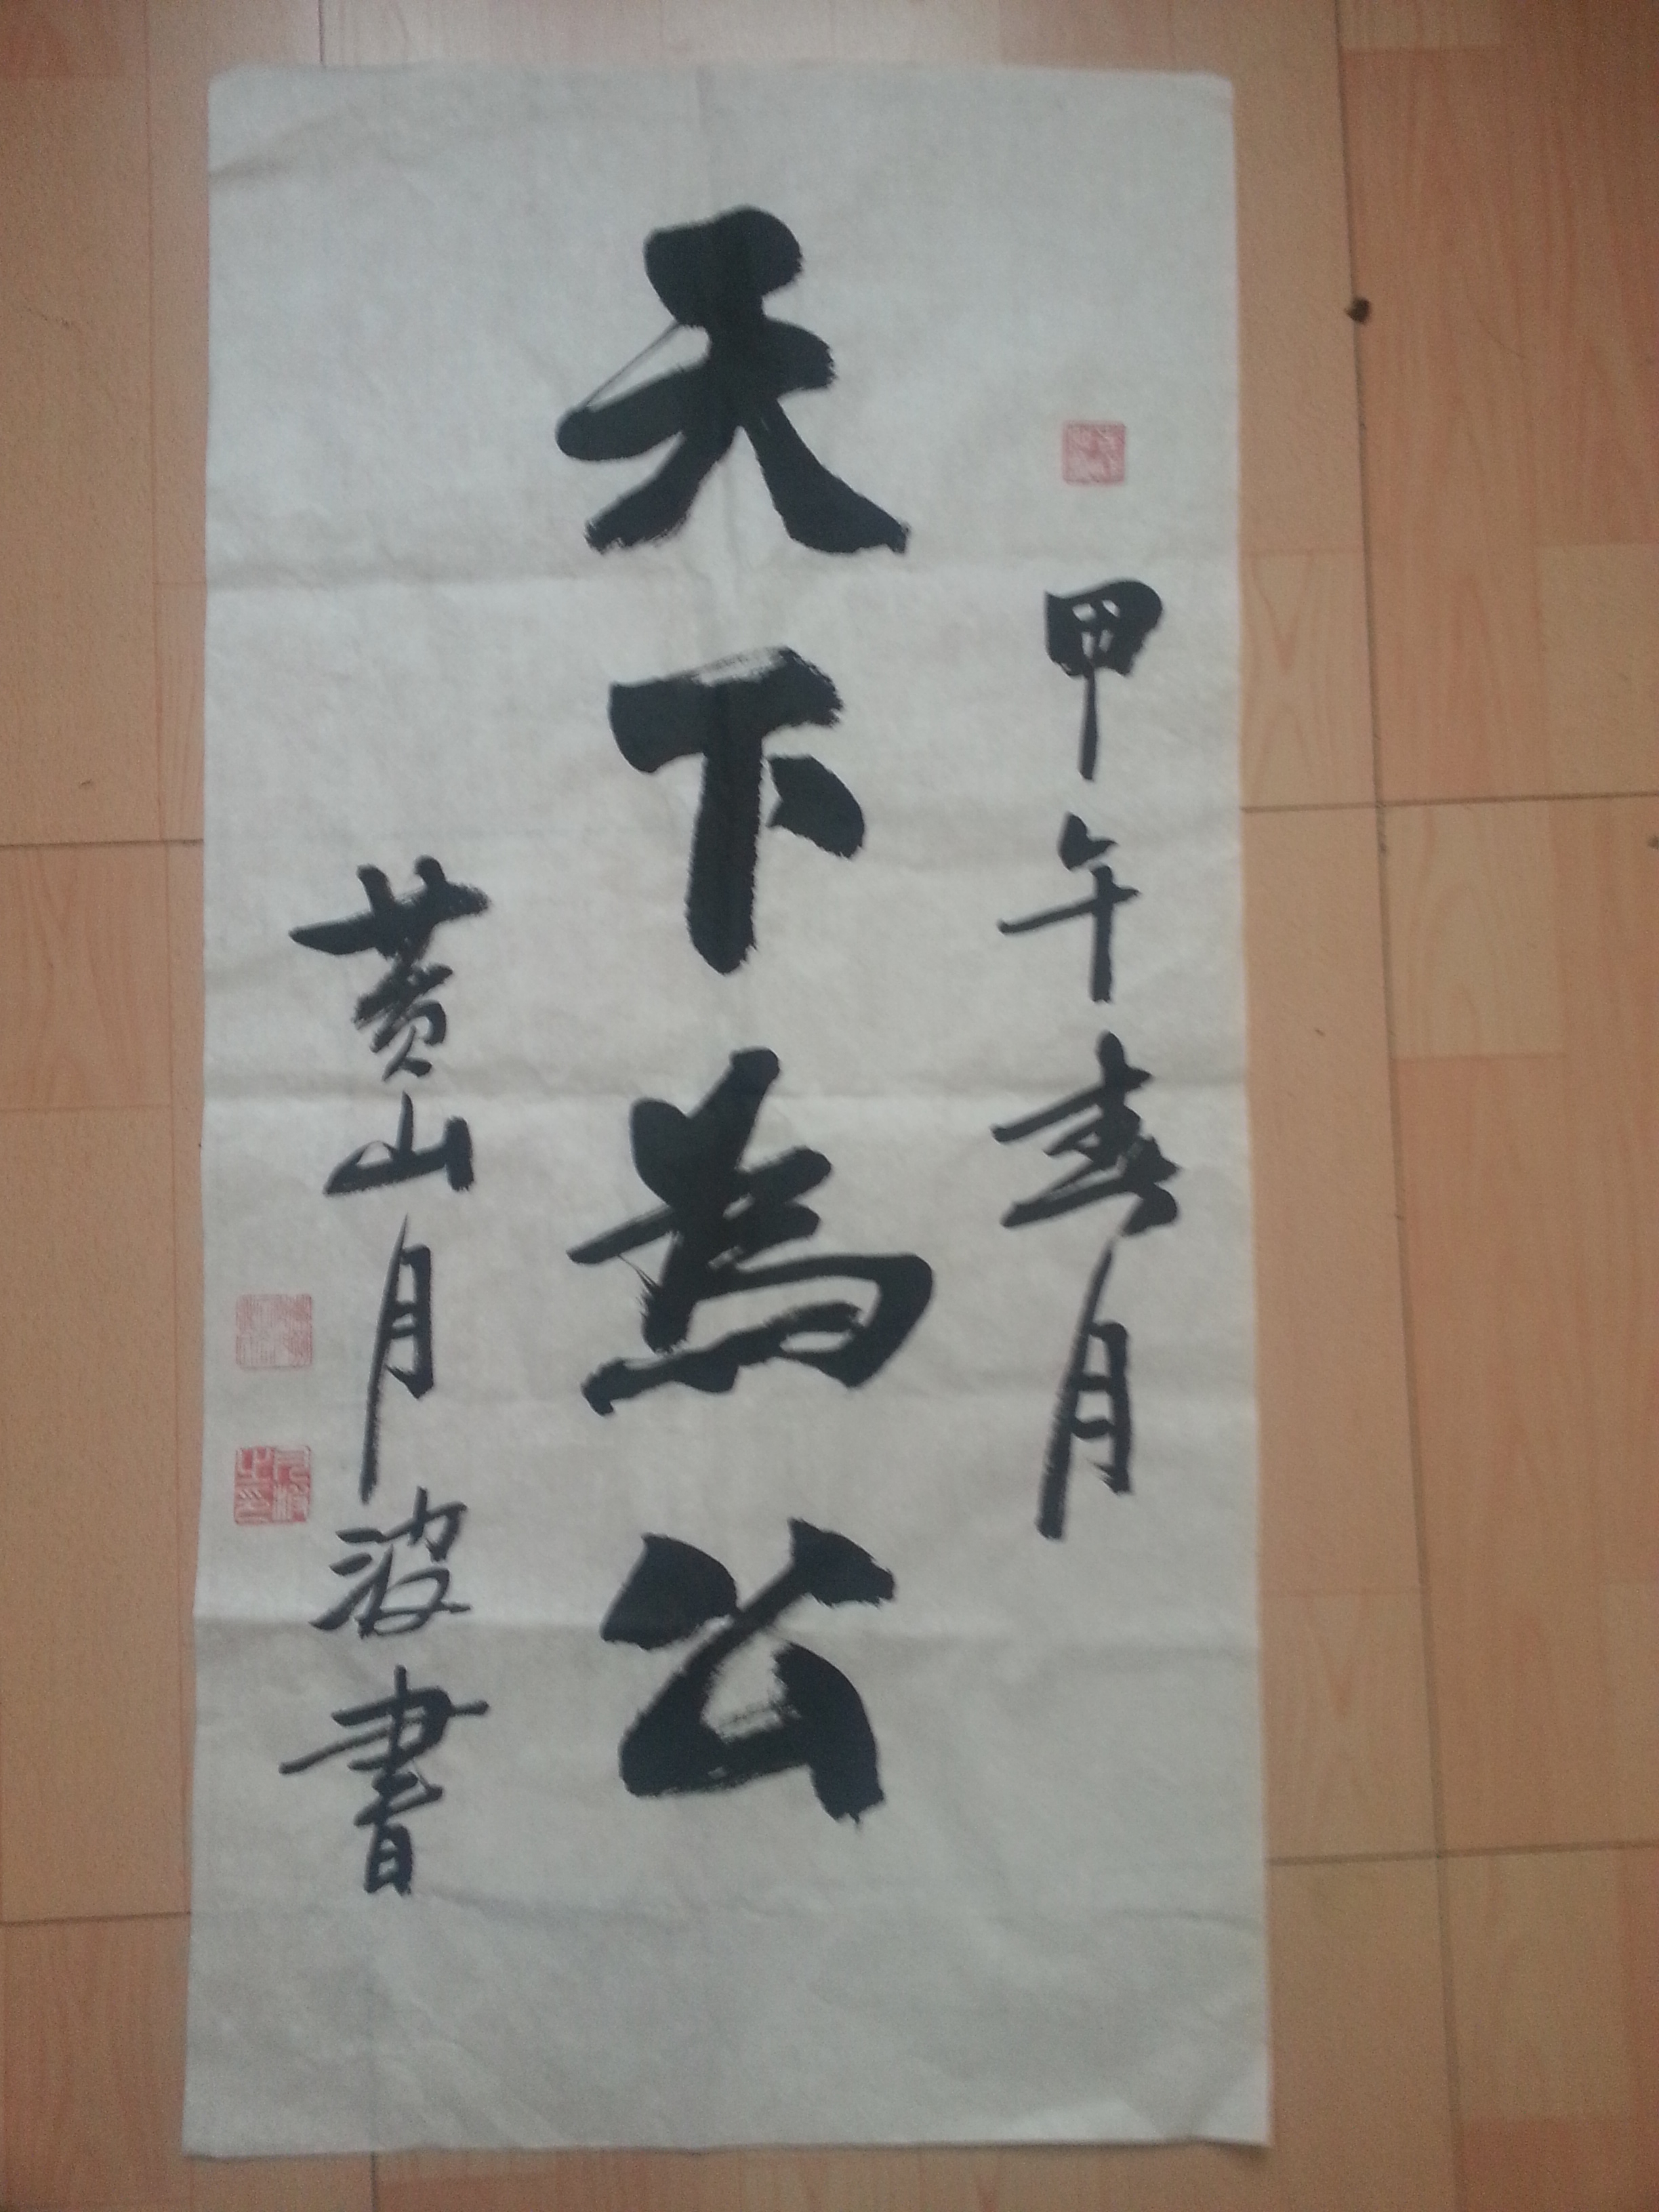 甲午春月
天下為公
黄山月波書